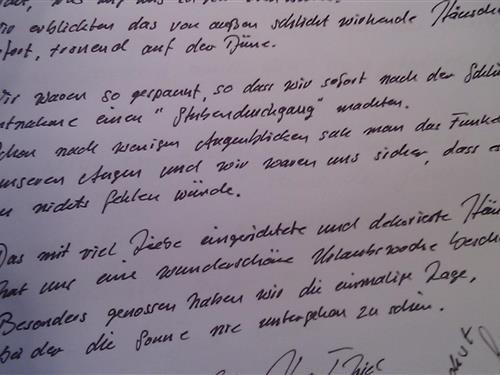 wir erblickten das von außen schlicht wirkende Häusche
sofort, tronend auf der Düne.
Wir waren so gespannt, so dass wir sofort nach der Schlü
entnahme einen "Stubendurchgang" machten.
Schon nach wenigen Augenblicken sah man das Funkel
unseren Augen und wir waren uns sicher, dass e
an nichts fehlen würde.
Das mit viel Liebe eingerichtete und dekorierte Häu
hat uns eine wunderschöne Urlaubswoche besche
Besonders genossen haben wir die einmalige Lage,
bei der die Sonne nie untergehen zu schien.